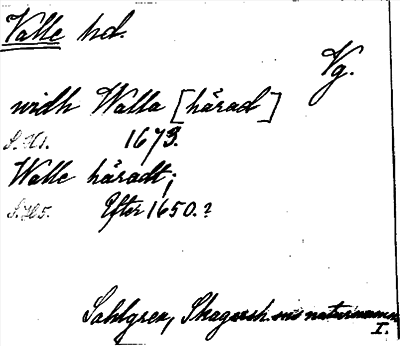 Valle hd.
Vg.
widh Walla [härad]
1673.
Walle häradt;
Efter 1650.?
Sahlgren, Skagersh. sns naturnamn
I.